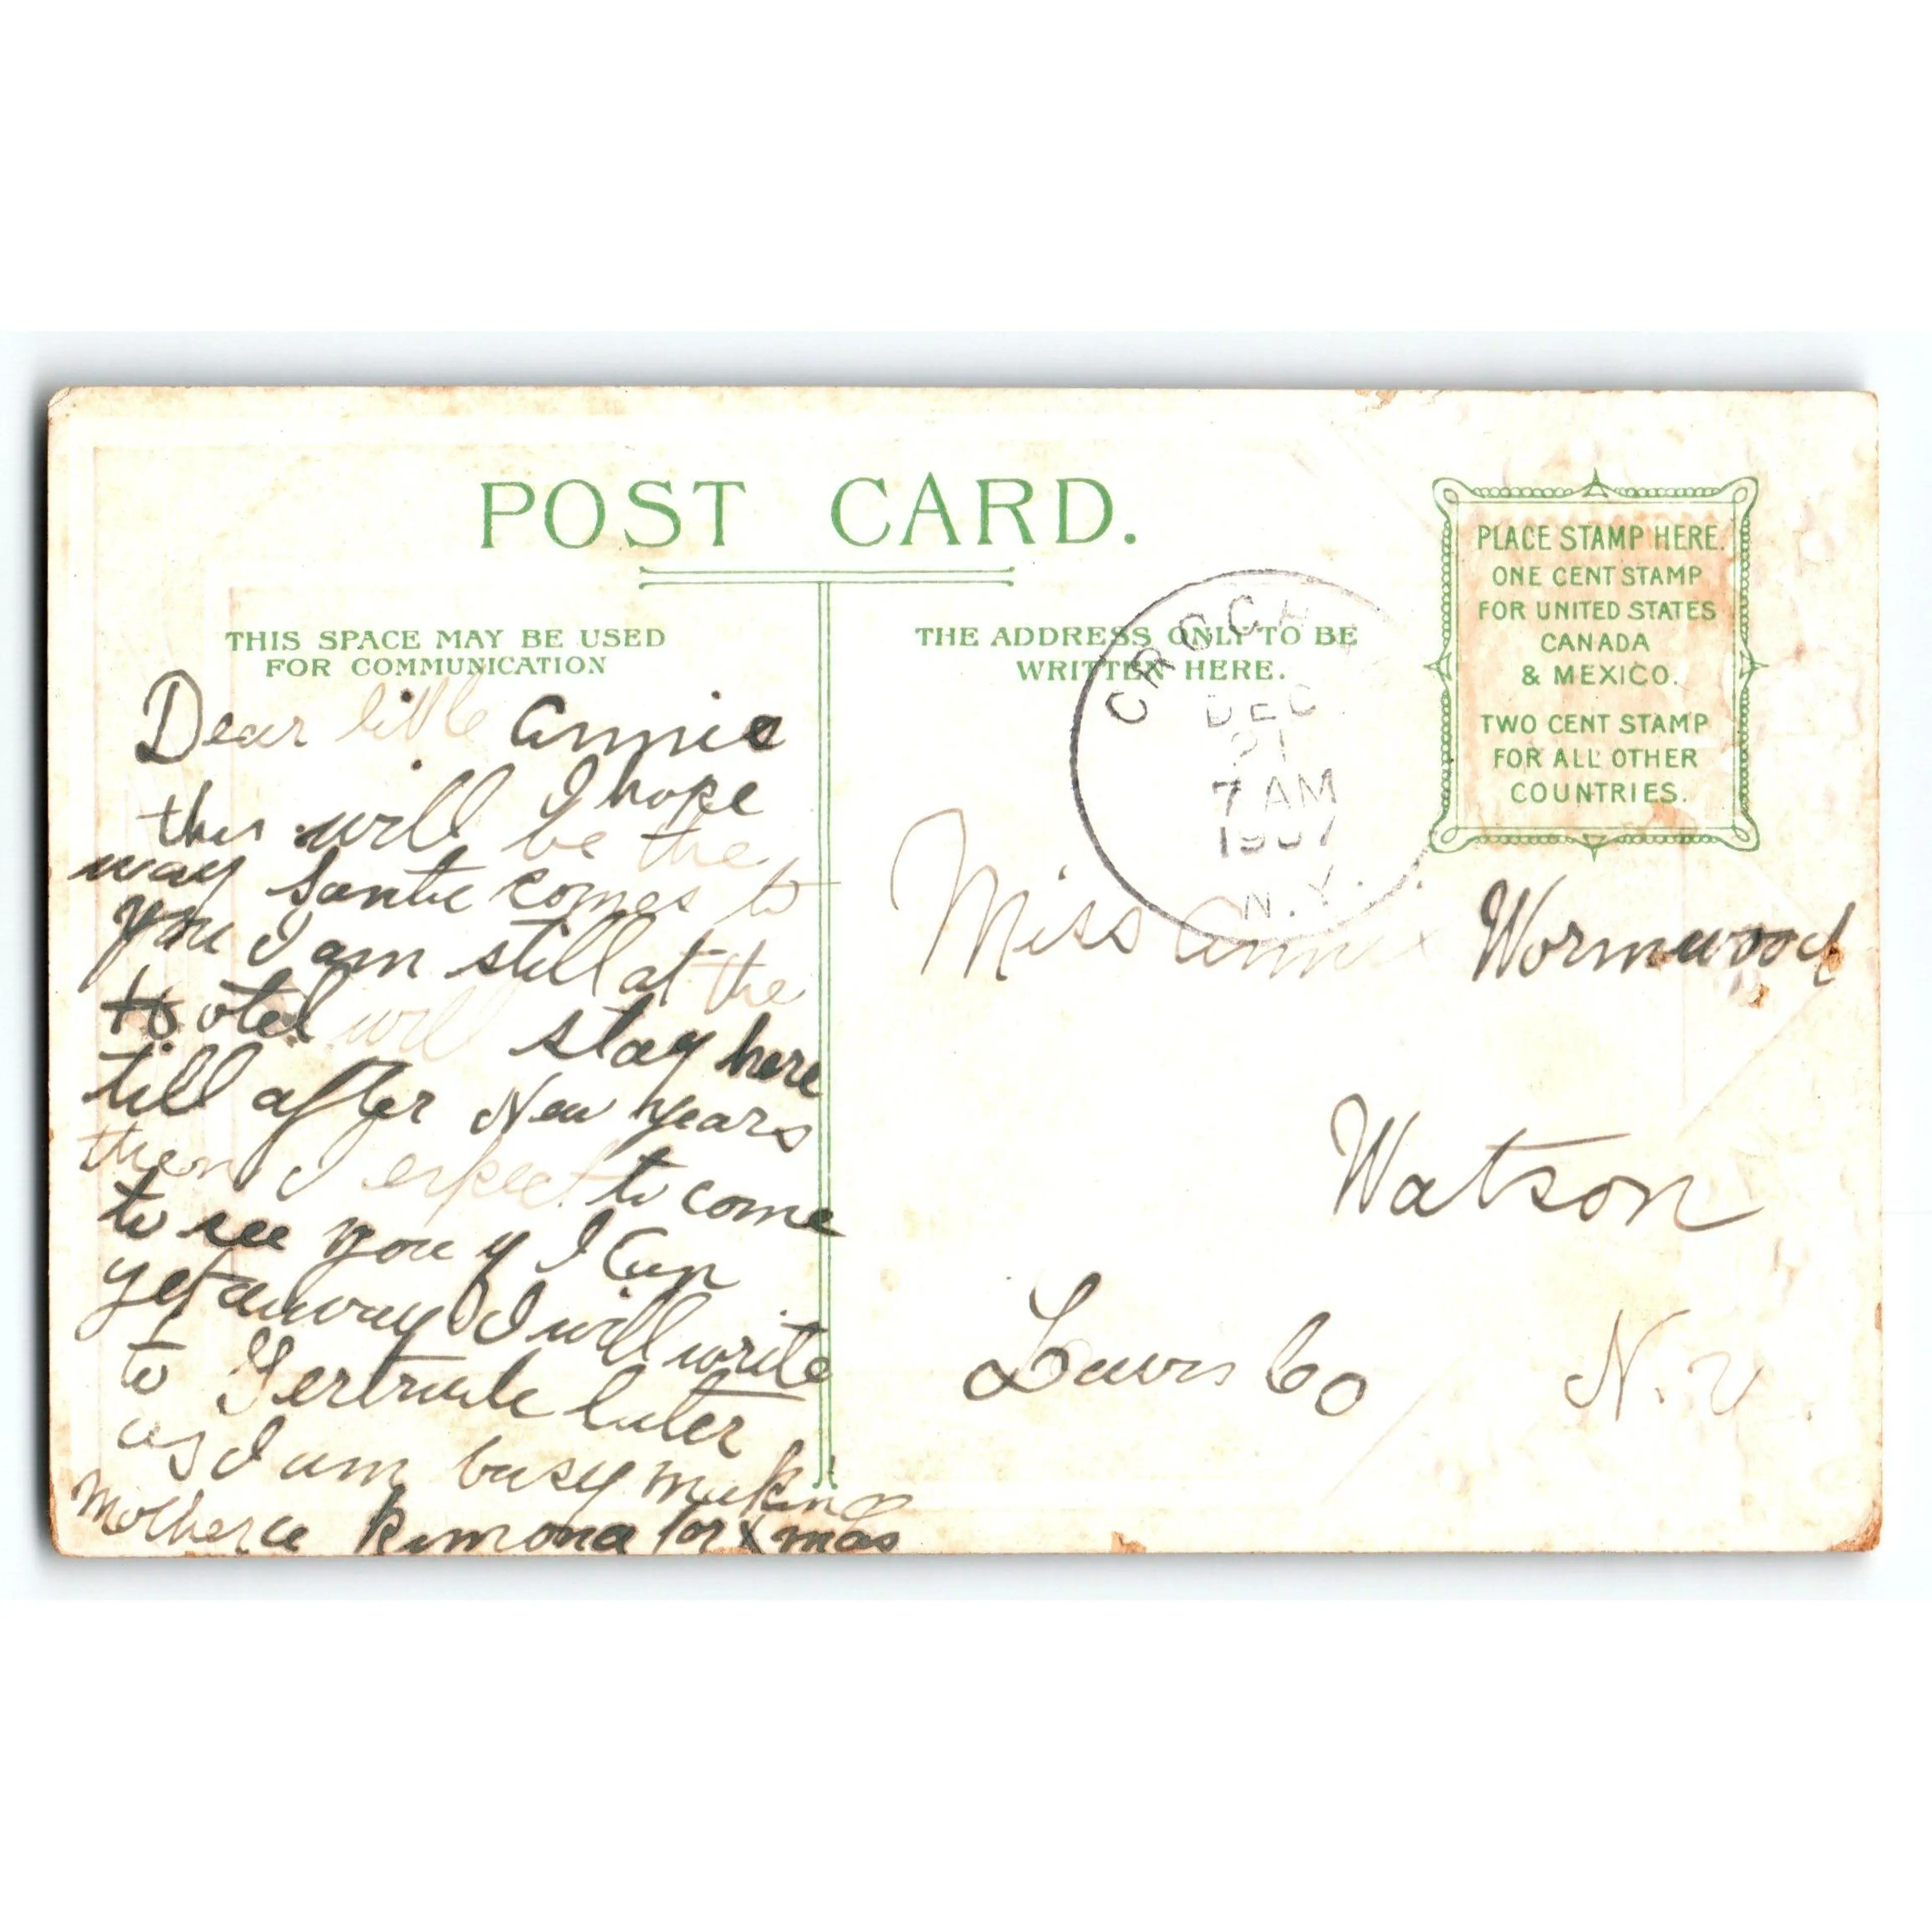 POST CARD.
THIS SPACE MAY BE USED
FOR COMMUNICATION
THE ADDRESS ONLY TO BE
WRITTEN HERE.
PLACE STAMP HERE.
ONE CENT STAMP
FOR UNITED STATES
CANADA
& MEXICO.
TWO CENT STAMP
FOR ALL OTHER
COUNTRIES.
DEC
21
7 AM
1907
N.Y.
Dear little Annie
I hope
this will be the
way Santie comes to
you I am still at the
Hotel will stay here
till after New Years
then I expect to come
to see you if I Can
get away I will write
to Gertrude later
as I am busy making
Mother a Kimona for Xmas
Miss Annie Wormwood
Watson
Lewis Co N.Y.